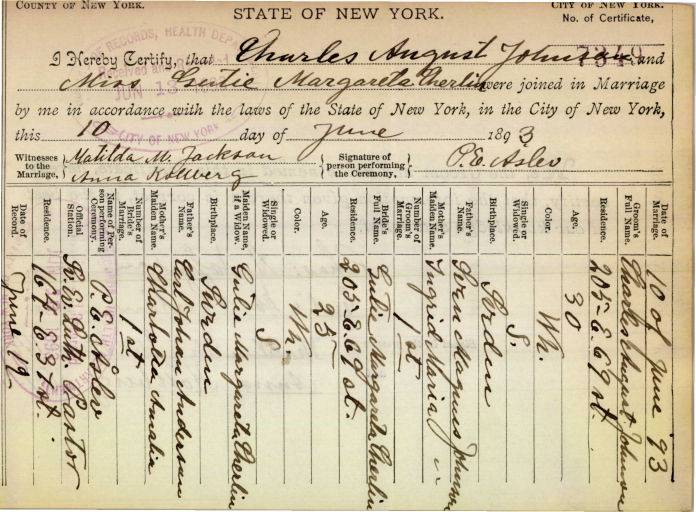 COUNTY OF NEW YORK.
CITY OF NEW YORK.
STATE OF NEW YORK.
No. of Certificate,
I Hereby Certify, that Charles August Johnson and
Miss Gutie Margareta Cherlin were joined in Marriage
by me in accordance with the laws of the State of New York, in the City of New York,
this 10 day of June 1893
Witnesses to the Marriage, Matilda M. Jackson
Anna Kolberg
Signature of person performing the Ceremony, P. E. Aslev
Date of Marriage. 10 of June 93
Groom's Full Name. Charles August Johnson
Residence. 205 E. 69 st.
Age. 30
Color. Wh.
Single or Widowed. S.
Birthplace. Sveden
Father's Name. Sven Magnus Johnson
Mother's Maiden Name. Ingrid Maria
Number of Groom's Marriage. 1st
Bride's Full Name. Gutie Margareta Cherlin
Residence. 205 E. 69 st.
Age. 25
Color. Wh.
Single or Widowed. S
Maiden Name, if a Widow. Gutie Margareta Cherlin
Birthplace. Sveden
Father's Name. Carl Johan Anderson
Mother's Maiden Name. Charlotta Amalia
Number of Bride's Marriage. 1st
Name of Person performing Ceremony. P. E. Aslev
Official Station. Sv. Ev. Luth. Pastor
Residence. 169 E. 37 st.
Date of Record. June 12